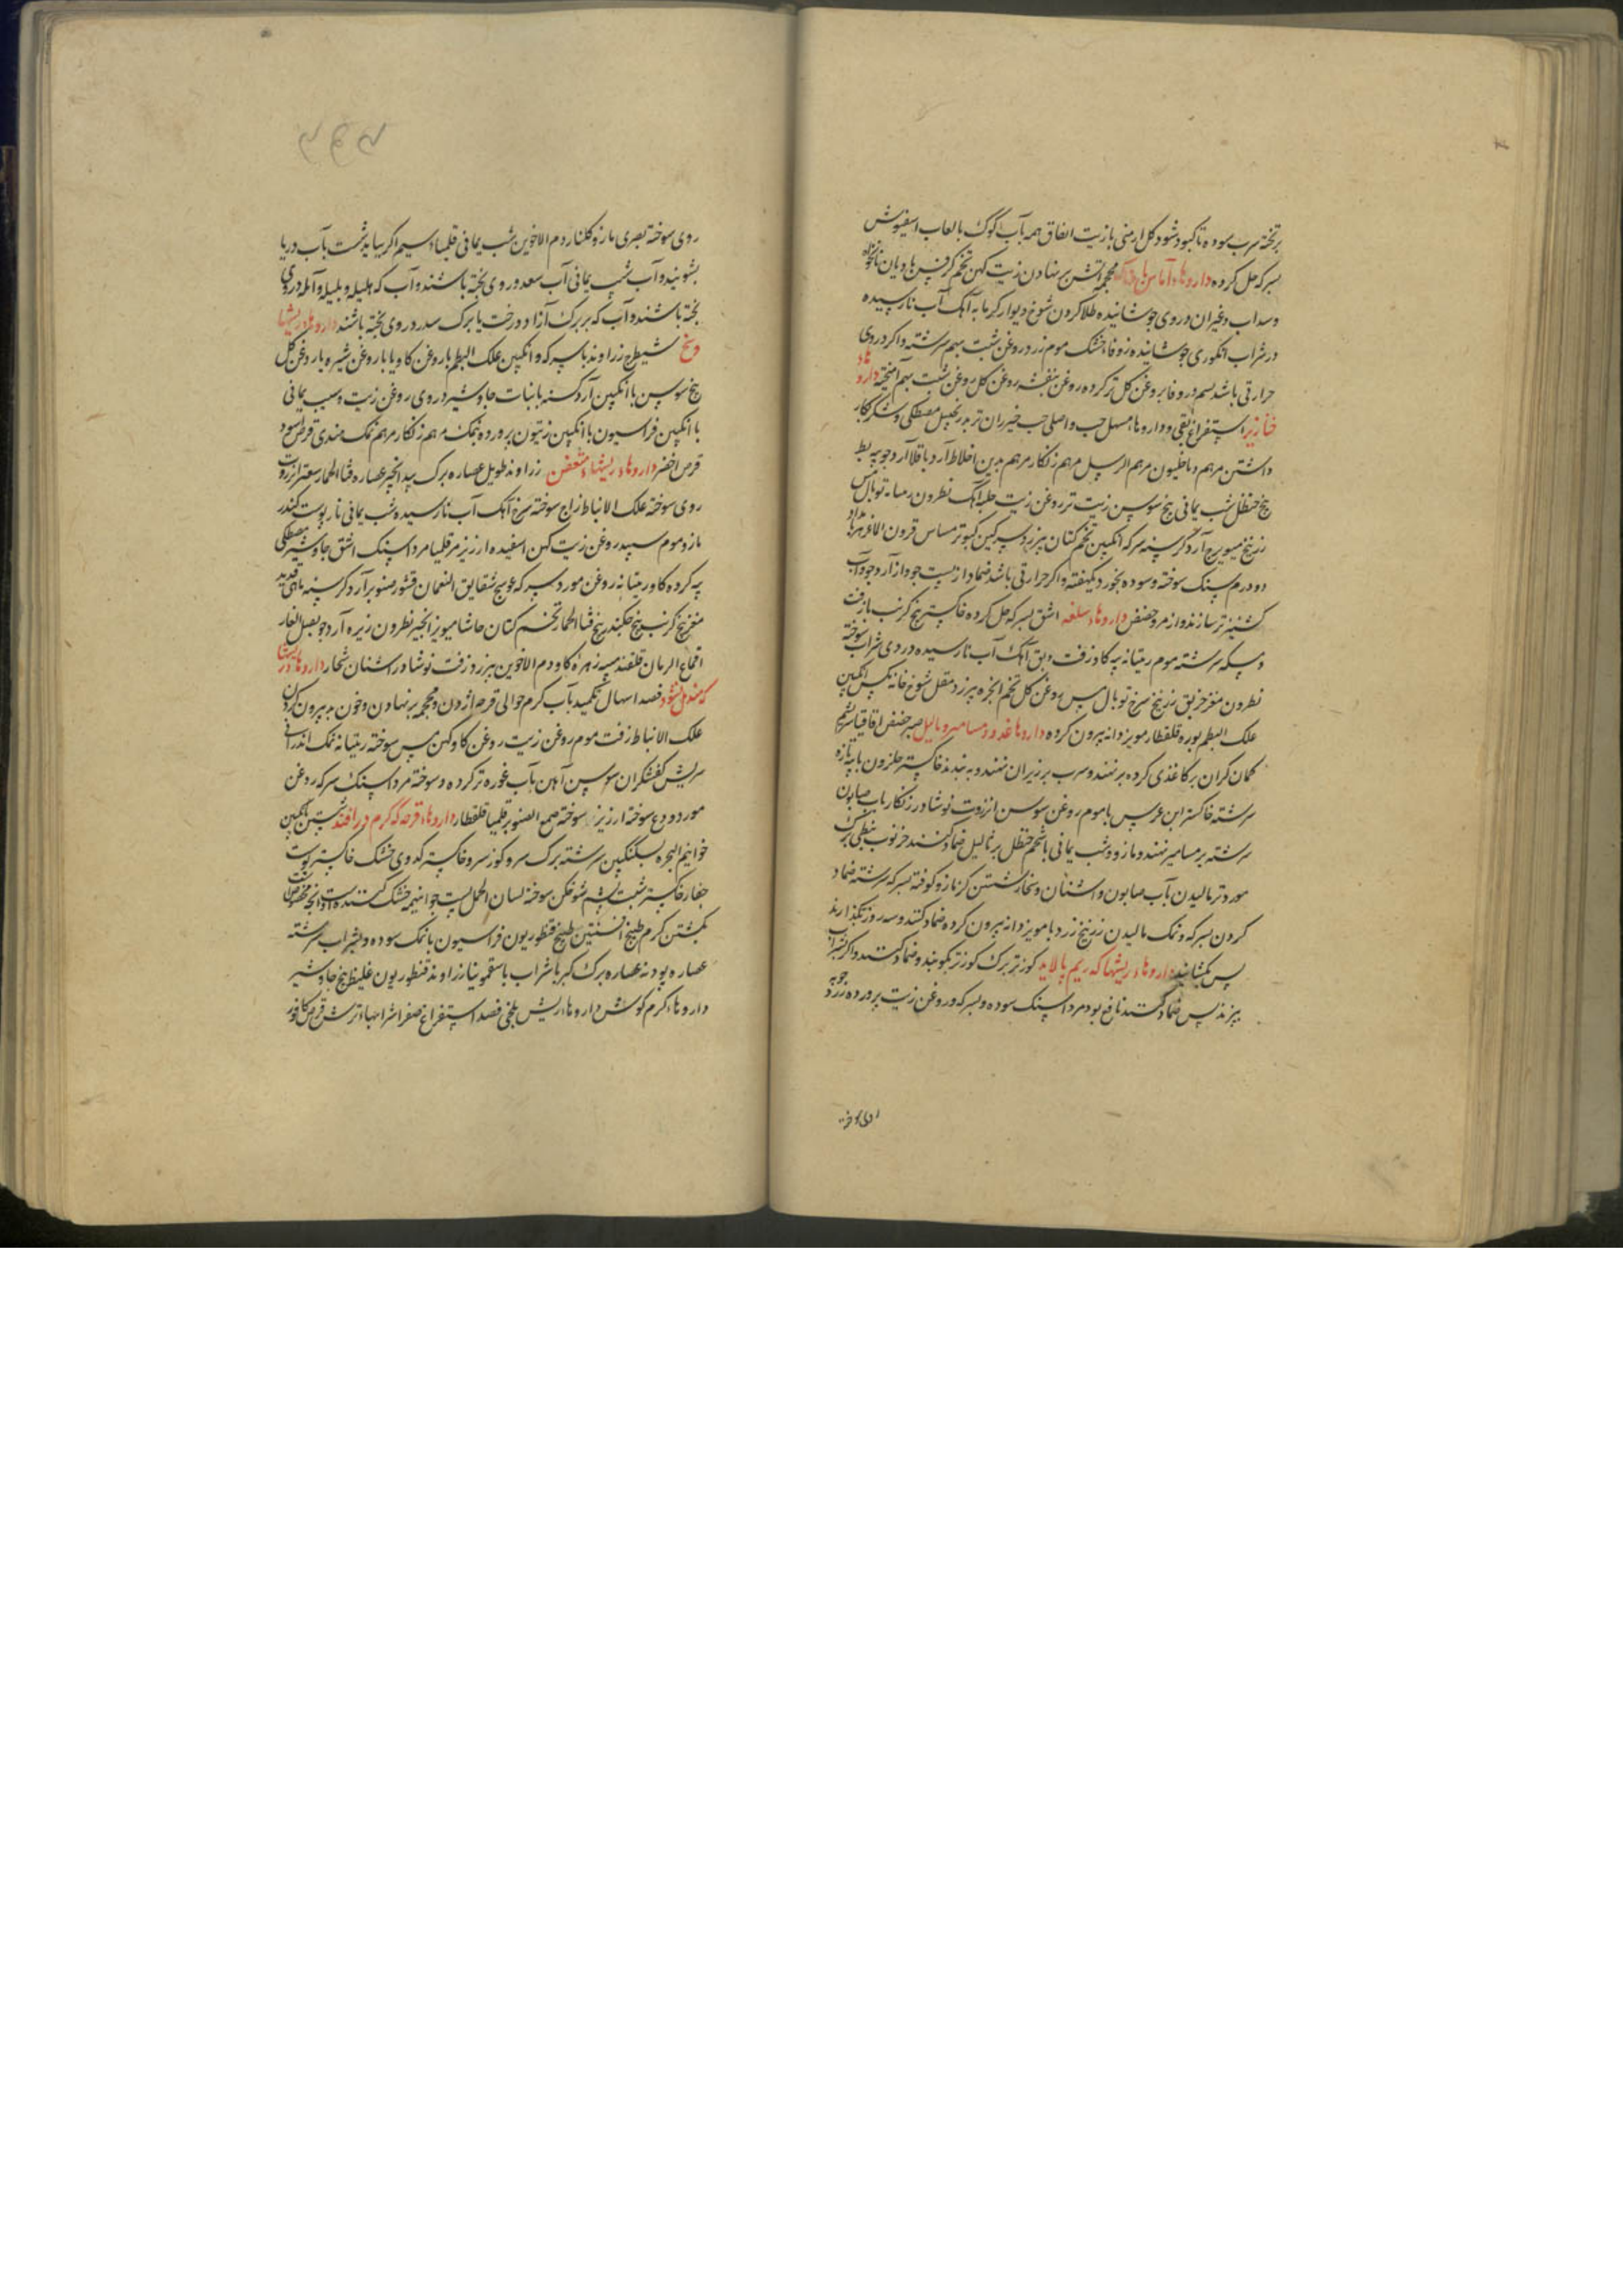 برتخته سرب سوده تا کبود شود کل ارمنی بازیت انفاق همه بآب کوک بالعاب اسفیوش
بسرکه حل کرده داروهاء آماس محجمه آتشن برنهادن زیت کهن تخم کرفس بادیان نانخواه
وسداب وغیران دروی جوشانیده طلا کردن شوخ دیوار کرمابه آهک آب نارسیده
درشراب انکوری جوشانیده زوفا خشک موم زرد روغن شبت بهم سرشته واکر دروی
حرارتی باشد بسم زوفا بروغن کل تر کرده روغن بنفشه روغن کل روغن شبت بهم آمیخته داروهاء
خنازیر استفراغ بقی وداروها مسهل حب واصلی حب خیزران تربد زنجبیل مصطکی وشکر بکار
داشتن مرهم دیاخلیون مرهم الرسل مرهم زنکار مرهم بدین اخلاط آرد باقلا آرد جو پیه بط
بیخ حنظل شب یمانی بیخ سوسن زیت تر روغن زیت حلبه آهک نطرون رصاص توبال مس
زرنیخ میویزج آرد کرسنه سرکه انکبین تخم کتان بیرزد سرکین کبوتر مساس قرون الماعز هربامداد
دو درم سنک سوخته وسوده بخورد یکهفته واکر حرارتی باشد ضماد از پست جو واز آرد جو وآب
کشنیز تر سازند واز مر وحضض داروهاء سلعه اشق بسرکه حل کرده خاکستر بیخ کرنب بازفت
وسکه سرشته موم رمتیانه پیه کاو زفت وبق آهک آب نارسیده دردی شراب سوخته
نطرون مغز خربق زرنیخ سرخ توبال مس روغن کل تخم انجره بیرزد مقل شوخ خانه مکس انکبین
علک البطم بوره قلقطار مویز دانه بیرون کرده داروها غدود ومسامیر وثالیل صبر حضض اقاقیا سریشم
کمان کران برکاغذی کرده برنهند وسرب برزبران نهند وبه بندند خاکستر حلزون با پیه تازه
سرشته خاکستر ابن عرس باموم روغن سوسن انزروت نوشادر زنکار بآب صابون
سرشته بر مسامیر نهند ومازو وشب یمانی باشحم حنظل بر ثالیل ضماد کنند خرنوب نبطی برک
مورد تر مالیدن بآب صابون واشنان وبخار شستن کزمازو کوفته بسرکه سرشته ضماد
کردن بسرکه ونمک مالیدن زرنیخ زرد بامویز دانه بیرون کرده ضماد کنند وسه روز بکذارند
پس بکشایند داروهاء ریشها که ریم پالاید کوز تر برک کوز تر بکوبند وضماد کنند واکر بشراب
بپزند پس ضماد کنند نافع بود مرداسنک سوده وبسرکه وروغن زیت پرورده زرد چوبه
روی سوخته
روی سوخته بصری مازو کلنار دم الاخوین شب یمانی قلیمیاء سیم اکر بباید شست بآب دریا
بشویند وآب شب یمانی آب سعد در وی پخته باشند وآب که هلیله وبلیله وآمله دروی
پخته باشند وآب که بربرک آزاد درخت یا برک سدر در وی پخته باشند داروهاء ریشها
وسخ شیطرج زراوند باسرکه وانکبین علک البطم باروغن کاو یا باروغن شیره باروغن کل
بیخ سوسن باانکبین آرد کرسنه بانبات جاوشیر دروی روغن زیت وسیب یمانی
باانکبین فراسیون باانکبین زیتون پرورده بنمک مرهم زنکار مرهم نمک هندی قرص اسود
قرص اخضر داروهاء ریشهاء متعفن زراوند طویل عصاره برک بید انجیر عصاره قثاالحمار سعتر انزروت
روی سوخته علک الانباط زاج سوخته سرخ آهک آب نارسیده شب یمانی نار پوست کندر
مازو موم سپید روغن زیت کهن اسفیده ارزیز مر قلیمیا مرداسنک اشق جاوشیر مصطکی
پیه کرده کاو رمتیانه روغن مورد سرکه عوسج شقایق النعمان قشور صنوبر آرد کرسنه ماهی قدید
مغز بیخ کرنب بیخ جکندر بیخ قثاالحمار تخم کتان حاشا میویز انجیر نطرون زیره آرد جو بصل الفار
اقماع الرمان قلقند پیه زهره کاو ودم الاخوین بیرزد زفت نوشادر اشنان شخار داروهاء ریشها
که مندمل نشود فصد اسهال تکمید بآب کرم حوالی قرحه آژدن ومحجمه برنهادن وخون بد بیرون کردن
علک الانباط زفت موم روغن زیت روغن کاو کهن مس سوخته رمتیانه نمک اندرانی
سریش کفشکران سوسن آهن بآب غوره تر کرده وسوخته مرداسنک سرکه روغن
مورد ودع سوخته ارزیز سوخته صمغ الصنوبر قلیمیا قلقطار داروهاء قرحه که کرم درافتد شستن بانکبین
خواتیم البحره بسکنکبین سرشته برک سرو کوز سرو خاکستر کدوی خشک خاکستر پوست
حفار خاکستر شبت پشم شوخکن سوخته لسان الحمل پست جو اینهمه خشک کننده است وانچه مخصوص است
بکشتن کرم طبیخ افسنتین طبیخ قنطوریون فراسیون بانمک سوده وبشراب سرشته
عصاره پودنه عصاره برک کبر باشراب باسقمونیا زراوند قنطوریون غلیظ بیخ جاوشیر
داروهاء کرم کوش داروهاء ریش بلخی فصد استفراغ صفرا شرابهاء ترش قرص کافور